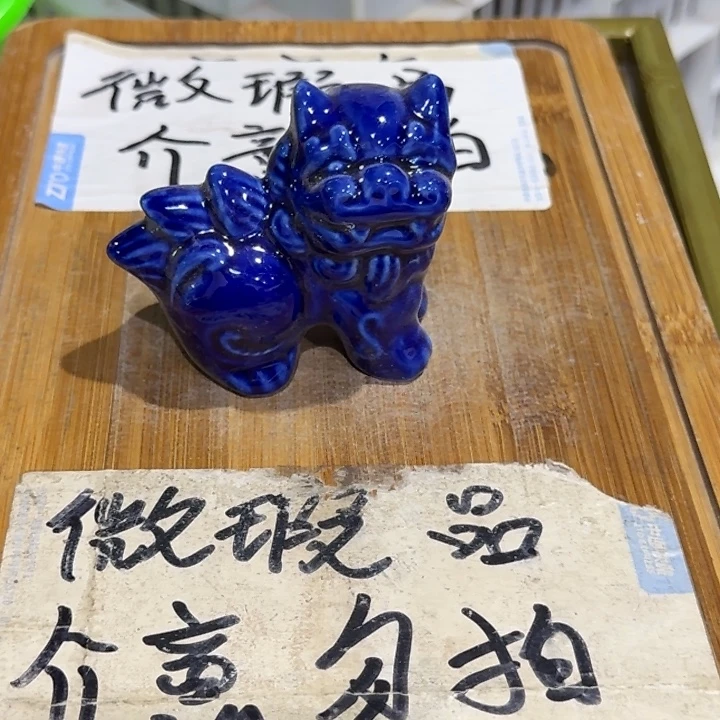 微瑕品
介意拍
ZTO
微瑕品
介意勿拍